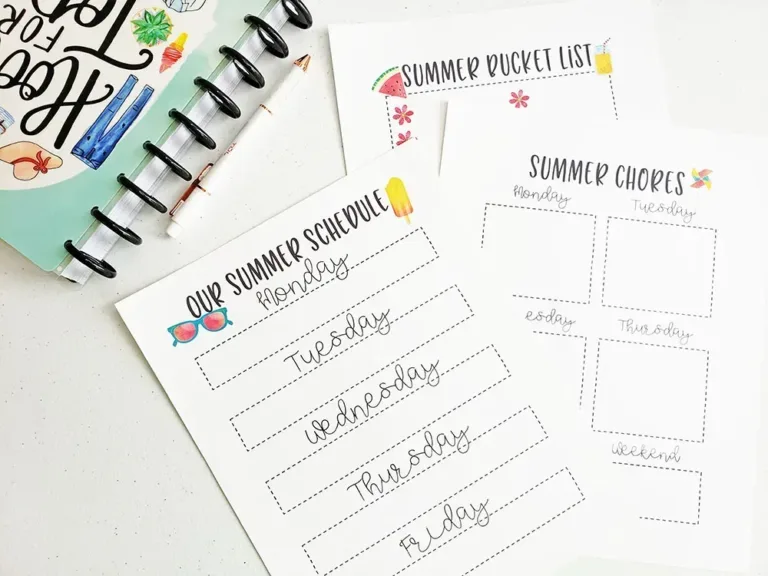 FOR
SUMMER BUCKET LIST
SUMMER CHORES
Monday Tuesday
esday Thursday
Weekend
OUR SUMMER SCHEDULE
Monday
Tuesday
Wednesday
Thursday
Friday